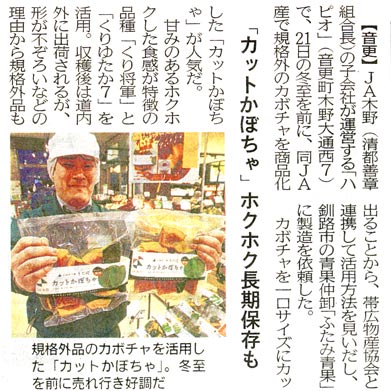 「カットかぼちゃ」 ホクホク長期保存も
【音更】ＪＡ木野（清都善章
組合長）の子会社が運営する「ハ
ピオ」（音更町木野大通西７）
で、21日の冬至を前に、同ＪＡ
産で規格外のカボチャを商品化
した「カットかぼち
ゃ」が人気だ。
甘みのあるホクホ
クした食感が特徴の
品種「くり将軍」と
「くりゆたか７」を
活用。収穫後は道内
外に出荷されるが、
形が不ぞろいなどの
理由から規格外品も
出ることから、帯広物産協会と
連携して活用方法を見いだし、
釧路市の青果仲卸「ふたみ青果」
に製造を依頼した。
カボチャを一口サイズにカッ
カットかぼちゃ
カットかぼちゃ
規格外品のカボチャを活用し
た「カットかぼちゃ」。冬至
を前に売れ行き好調だ